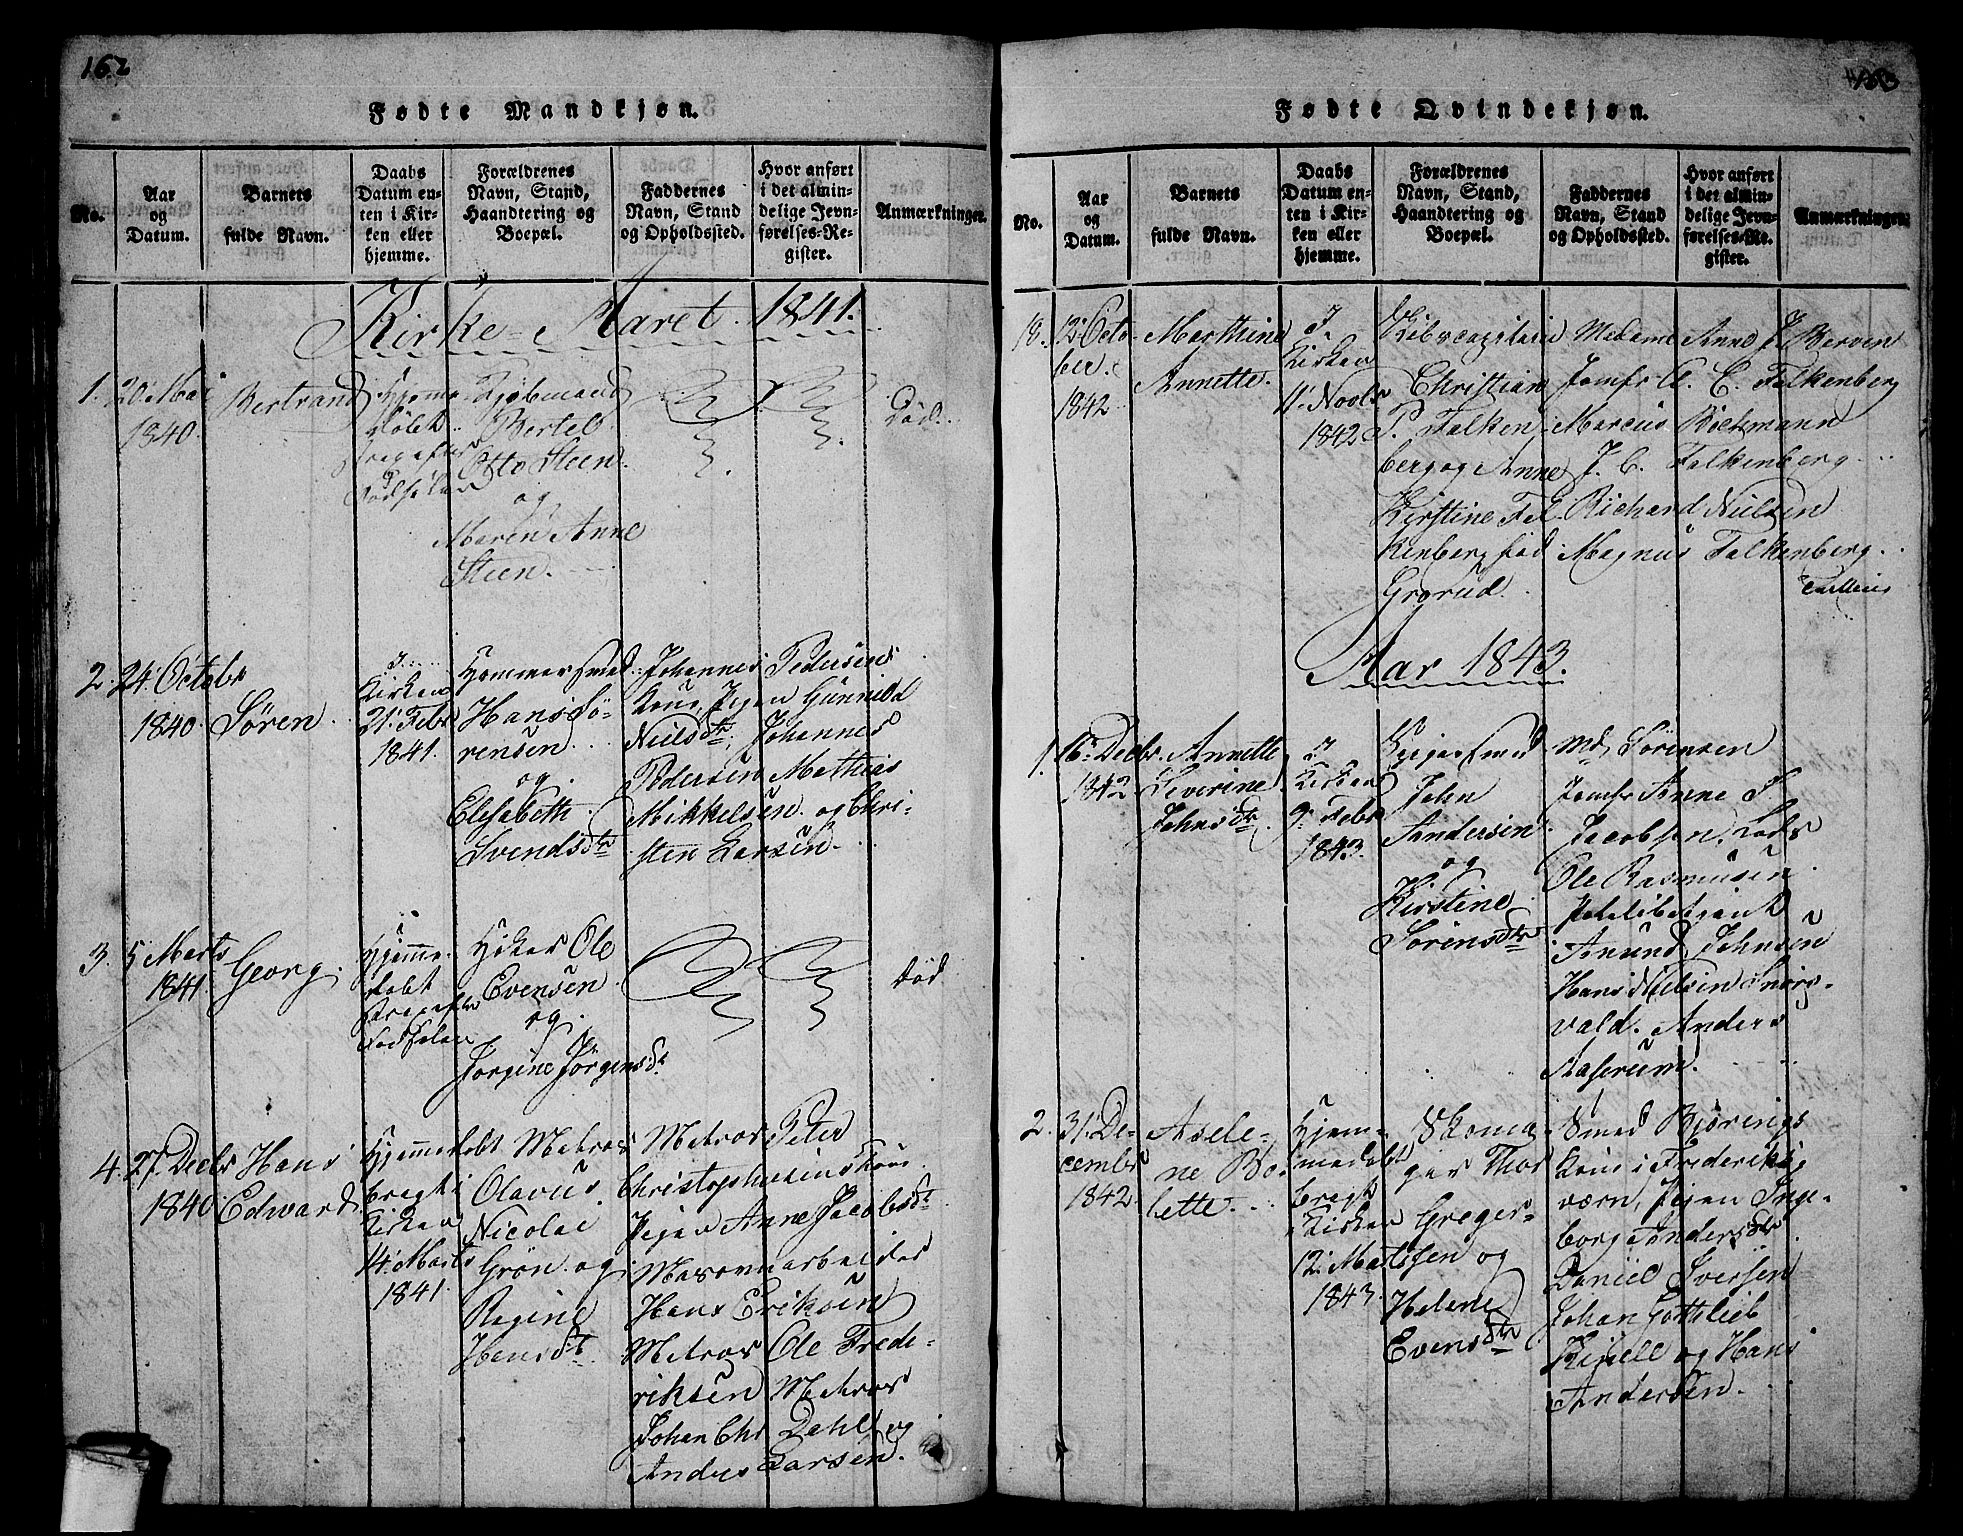 162
Fødte Mandkjøn.
No.
Aar
og
Datum.
Barnets
fulde Navn.
Daabs
Datum en-
ten i Kir-
ken eller
hjemme.
Forældrenes
Navn, Stand,
Haandtering og
Boepæl.
Faddernes
Navn, Stand
og Opholdssted.
Hvor anført
i det almin-
delige Jevn-
førelses-Re-
gister.
Anmærkninger.
Kirke-Aaret 1841.
1.
20 Mai
1840.
Bertrand
Hjemme
døbt
Bertel
Otto Steen.
og
Maren Anne
Steen.
Død.
2.
24 Octobr
1840.
Søren
I
Kirken
21 Febr
1841.
Hammersmed
Hans Sö-
rensen
og
Elisabeth
Svendsdtr
Johannes Pedersens
Kone, Pigen Gunnild
Nielsdtr, Johannes
Pedersen Mathias
Mikkelsen og Chri-
sten Larsen.
3.
5 Marts
1841.
Georg.
Hjemme-
døbt
Ole
Evensen
og
Jorgine Jörgensdt
Død
4.
27. Decbr
1840
Hans
Edward
Hjemmedøbt
bragt i
Kirken
14 Marts
1841.
Matros
Olavus
Nicolai
Grön og
Regine
Hansdt.
Matros Peter
Christophersens Kone
Pigen Anne Jacobsdt
Masovnarbeider
Hans Eriksen
Matros Ole Frede-
riksen Matros
Johan Chr Dahl og
Anders Larsen.
Fødte Qvindekjøn.
No.
Aar
og
Datum.
Barnets
fulde Navn.
Daabs
Datum en-
ten i Kir-
ken eller
hjemme.
Forældrenes
Navn, Stand,
Haandtering og
Boepæl.
Faddernes
Navn, Stand
og Opholdssted.
Hvor anført
i det almin-
delige Jevn-
førelses-Re-
gister.
Anmærkninger.
18.
12 Octo-
ber.
1842
Marthine
Annette.
I
Kirken
11 Novbr
1842
Skibscapitain
Christian
P. Falken-
berg og Anne
Kirstine Fal-
kenberg fød
Grorud.
Madame Anne J. Berven
Jomfr A. C. Falkenberg
Marcus Böckmann
J. C. Falkenberg
Richard Nielsen
Magnus Falkenberg.
Aar 1843.
1.
16 Decbr
1842
Annette
Severine
Johnsdtr
I
Kirken
9 Febr
1843.
John
Andersen
og
Kirstine
Sörensdtr
Md Sörensen
Jomfr Anne S.
Jacobsen, Lods
Ole Rasmusen
Anund Johnsen
Hans Nielsen Snörs-
vald. Anders
Aaserum.
2.
31 De-
cembr
1842.
Asele-
ne Bo-
lette.
Hjem-
medøbt
bragt
i Kirken
12 Marts
1843.
Skoma-
ger Thor
Greger-
sen og
Helene
Evensdtr
Smed Bjørings
Kone i Frederiks-
værn, Pigen Inge-
borg Andersdtr
Daniel Iversen
Johan Gottlieb
og Hans
Andersen.